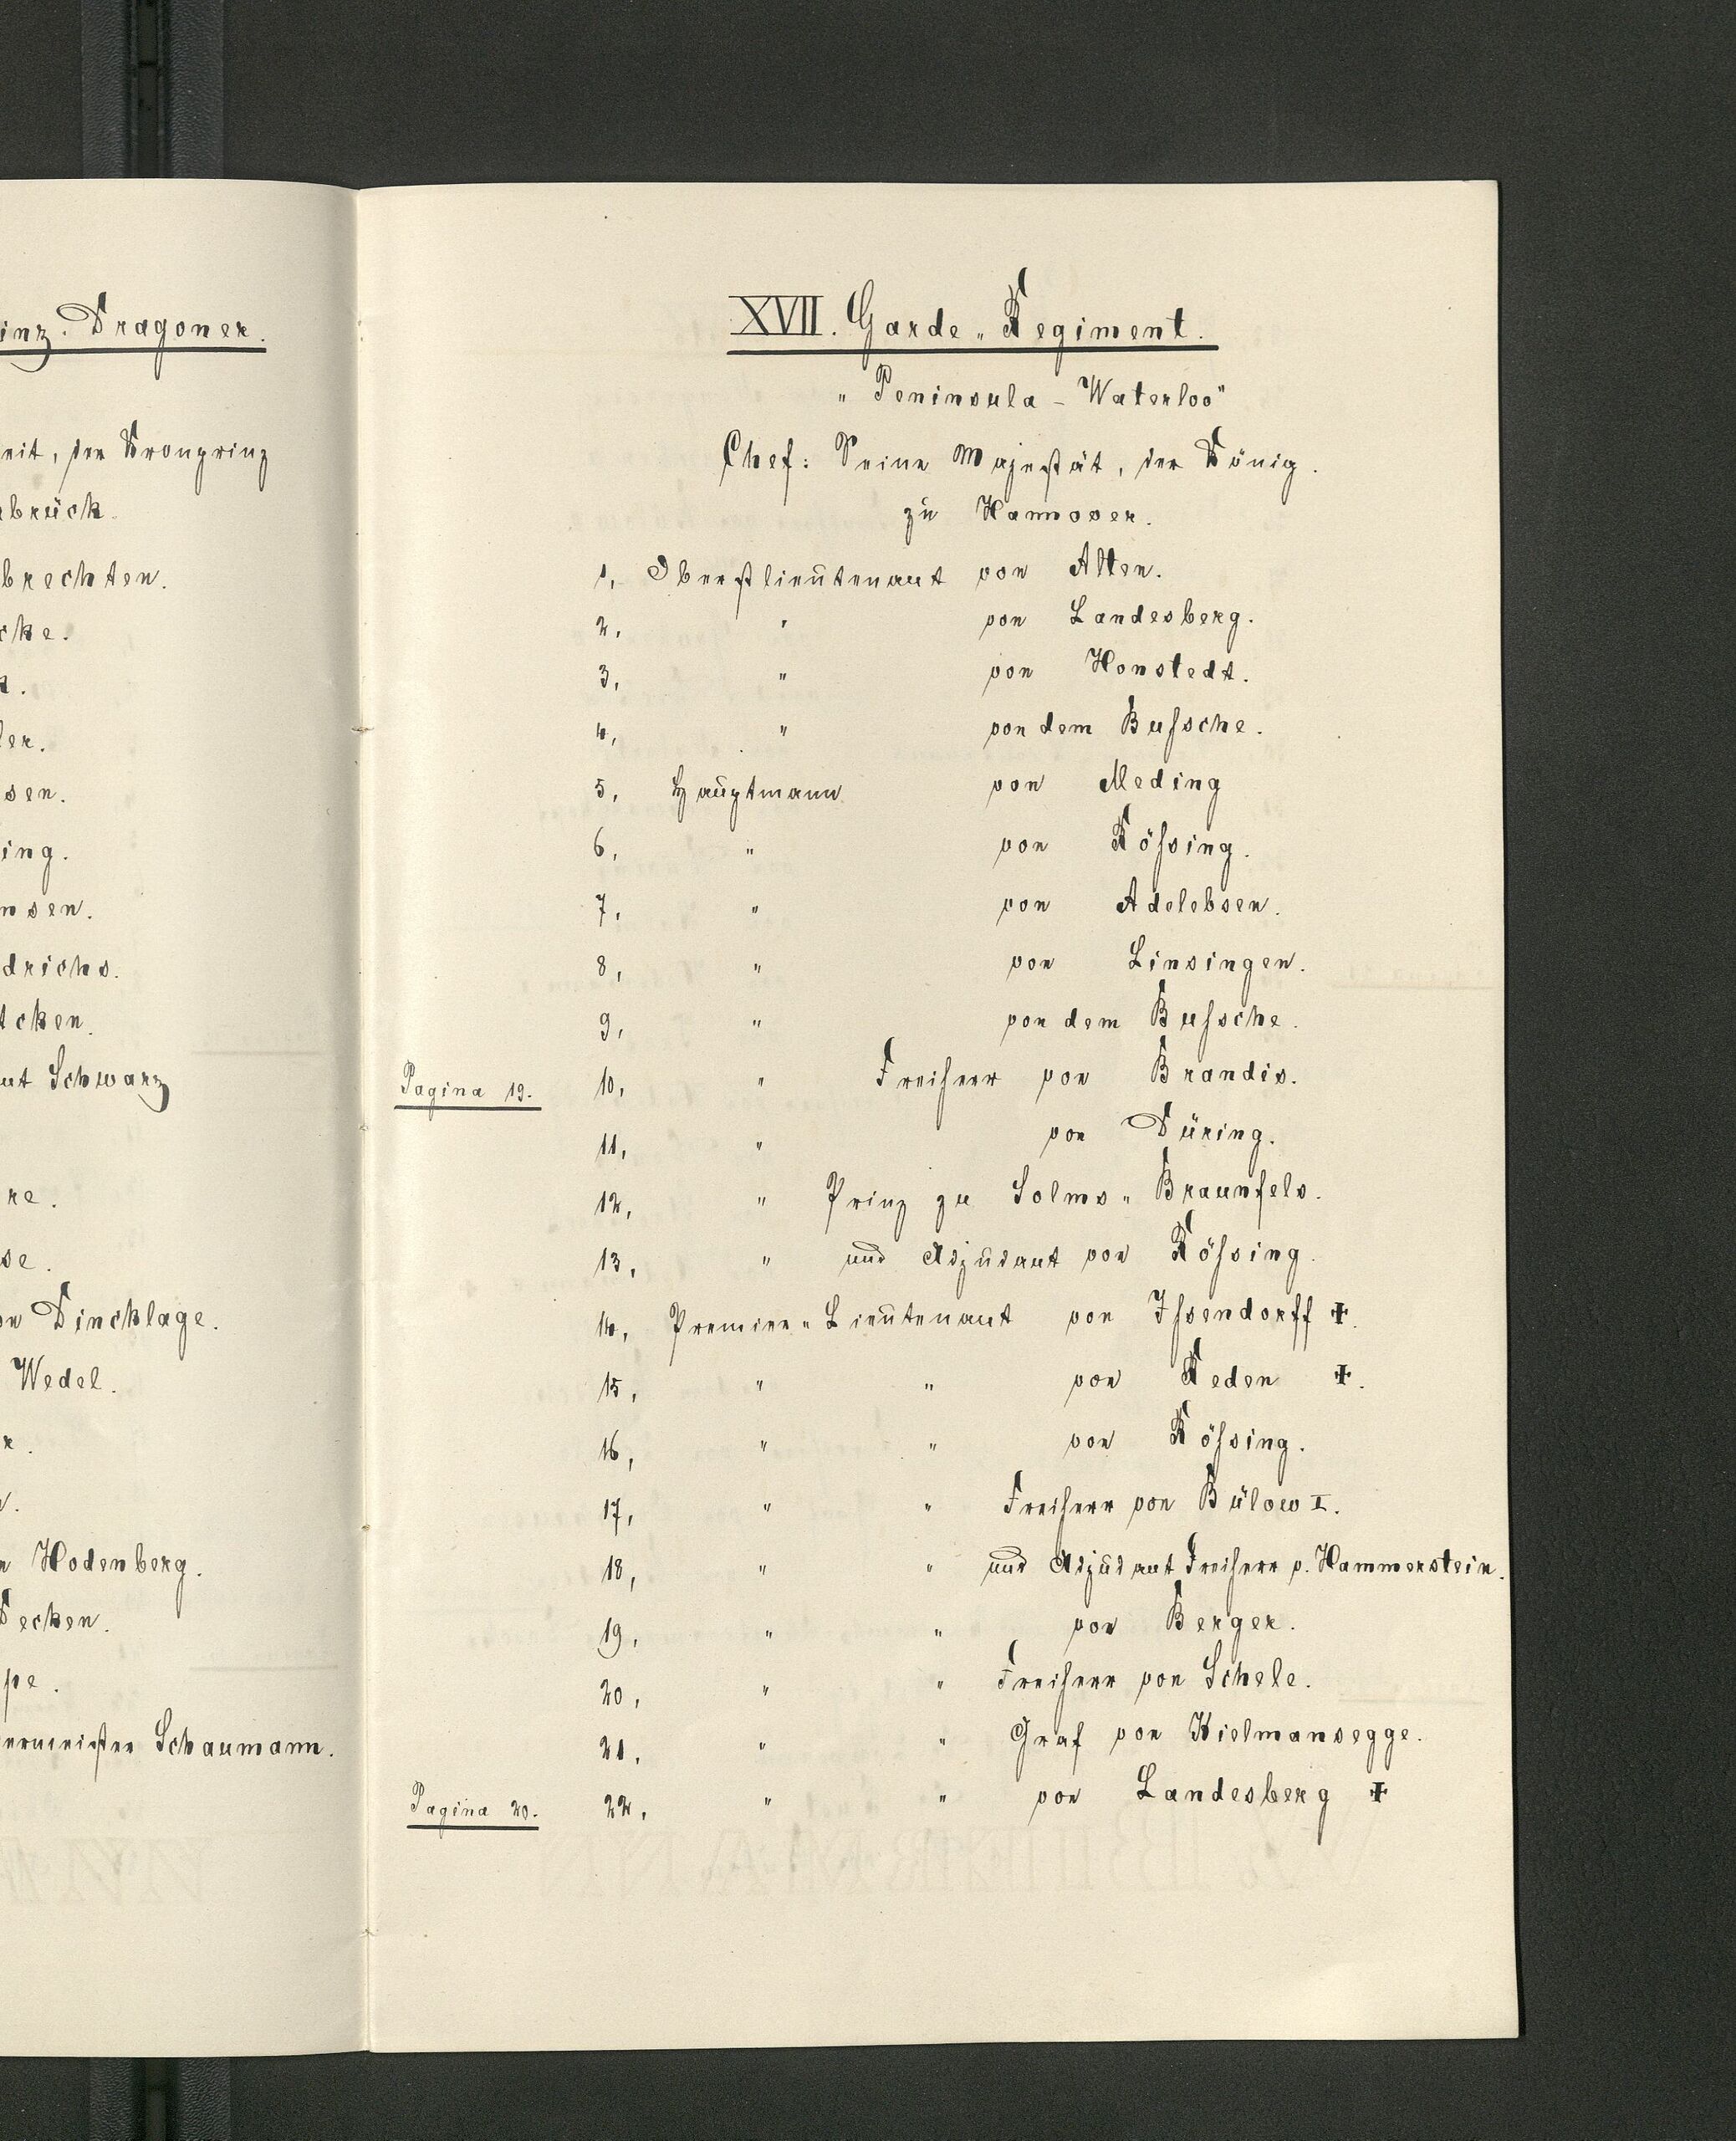 inz. Dragoner.
eit, der Kronprinz
brück.
brechten.
cke.
er.
sen.
ing.
nsen.
drichs.
tcken.
ut Schwarz
re.
se.
on Dincklage.
Wedel.
n Hodenberg.
Decken.
pe.
ermeister Schaumann.
XVII. Garde „ Regiment.
„ Peninsula - Waterloo"
Chef: Seine Majestät, der König.
zu Hannover.
1, Oberstlieutenant von Alten.
2, " von Landesberg.
3, " von Honstedt.
4, " von dem Bußche.
5, Hauptmann von Meding
6, " von Rößing.
7, " von Adelebsen.
8, " von Linsingen.
9, " von dem Bußche.
Pagina 19. 10, " Freiherr von Brandis.
11, " von Düring.
12, " Prinz zu Solms „ Braunfels.
13, " und Adjudant von Rößing.
14, Premier „ Lieutenant von Ißendorff ✝.
15, " " von Reden ✝.
16, " " von Rößing.
17, " " Freiherr von Bülow I.
18, " " und Adjudant Freiherr v. Hammerstein.
19, " " von Berger.
20, " " Freiherr von Schele.
21, " " Graf von Kielmansegge.
Pagina 20. 22, " " von Landesberg ✝